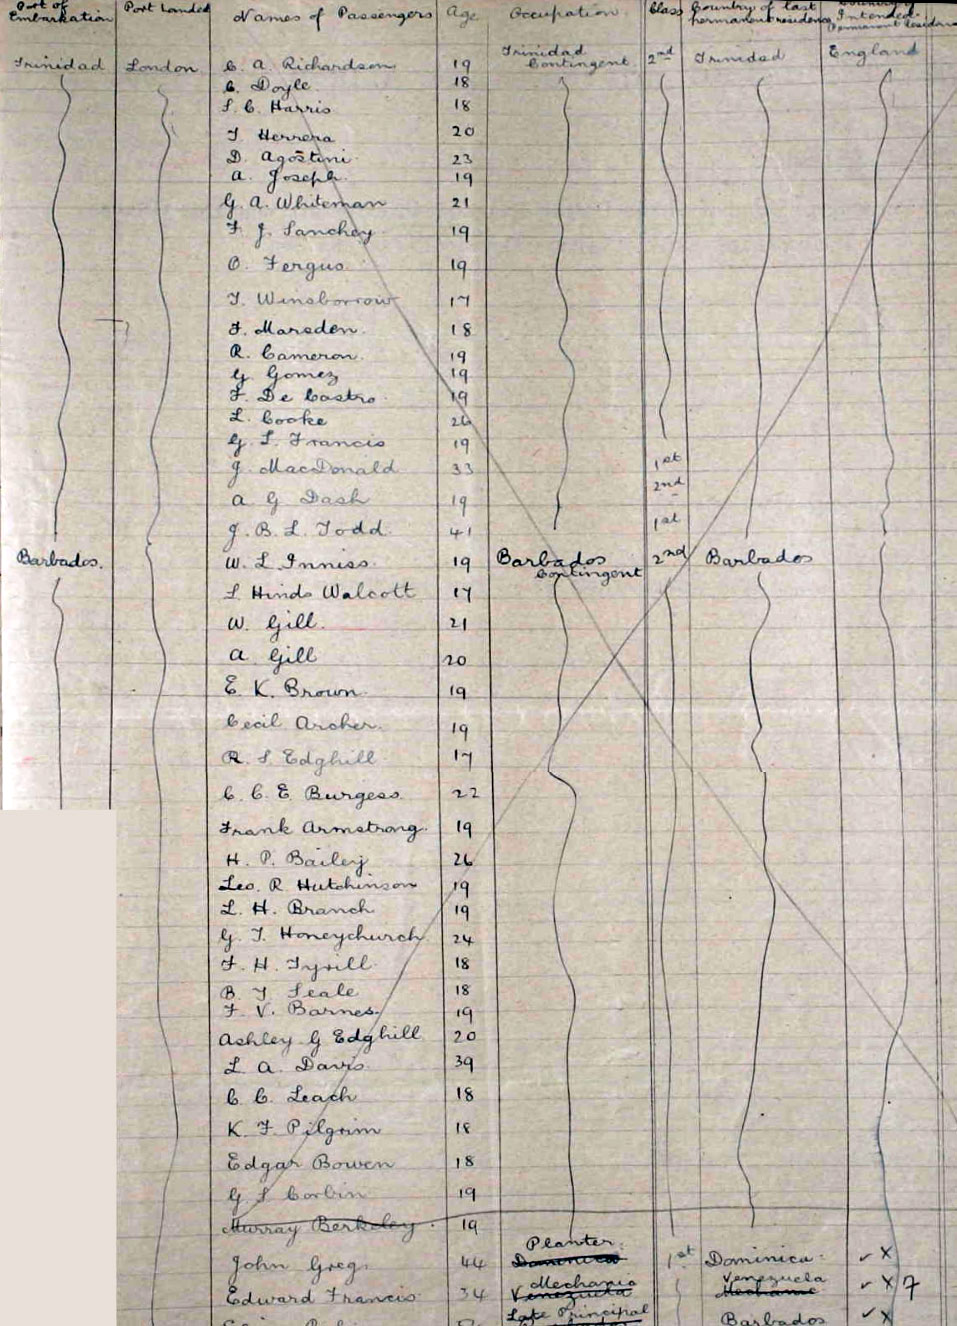 Port of Embarkation Port Landed Names of Passengers Age Occupation Class Country of last permanent residence Country of Intended Permanent Residence
Trinidad London C. A. Richardson 19 Trinidad Contingent 2nd Trinidad England
C. Doyle 18
S. C. Harris 18
T. Herrera 20
D. Agostini 23
A. Joseph 19
G. A. Whiteman 21
F. J. Sanchez 19
O. Fergus 19
T. Winsborrow 17
F. Marsden 18
R. Cameron 19
G Gomez 19
F. De Castro 19
L. Cooke 26
G. L. Francis 19
J. MacDonald 33 1st
2nd
A G Dash 19
J. B. L. Todd 41 1st
Barbados. W. L. Inniss 19 Barbados Contingent 2nd Barbados
S Hinds Walcott 17
W. Gill 21
A Gill 20
E. K. Brown 19
Cecil Archer 19
R. S Edghill 17
C. C. E Burgess 22
Frank Armstrong 19
H. P. Bailey 26
Leo. R Hutchinson 19
L. H. Branch 19
G. T. Honeychurch 24
F. H. Tyrill 18
B. T Seale 18
F. V. Barnes 19
Ashley G Edghill 20
L. A. Davis 39
C. C. Leach 18
K. F. Pilgrim 18
Edgar Bowen 18
G S Corbin 19
Murray Berkeley 19
John Greg 44 Planter Dominica 1st Dominica ✓ X
Edward Francis 34 Mechanic Venezuela Venezuela Mechanic ✓ X 7
Late Principal Barbados ✓ X